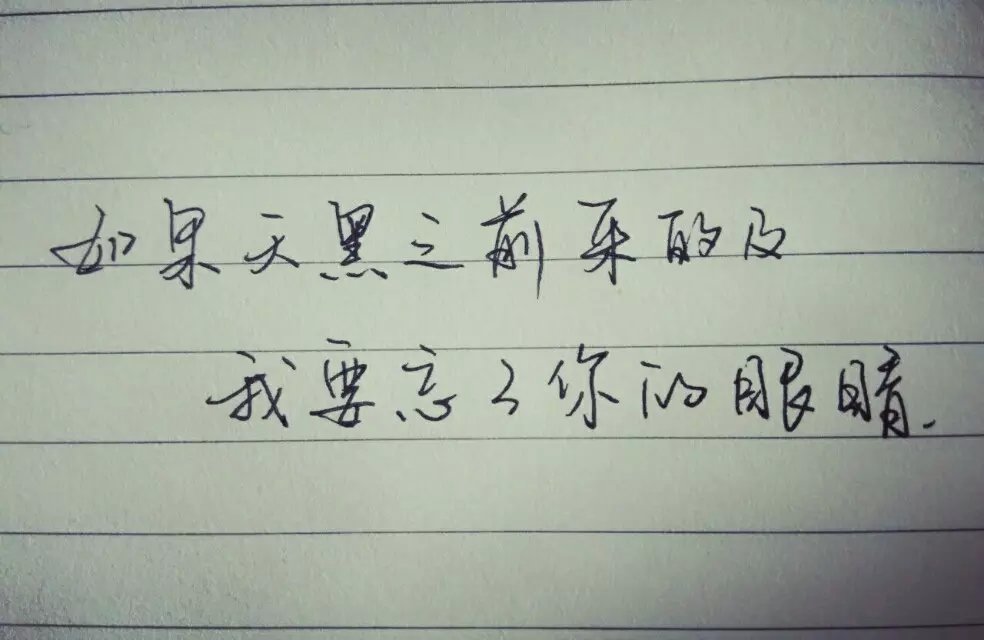 如果天黑之前来的及
我要忘了你的眼睛.